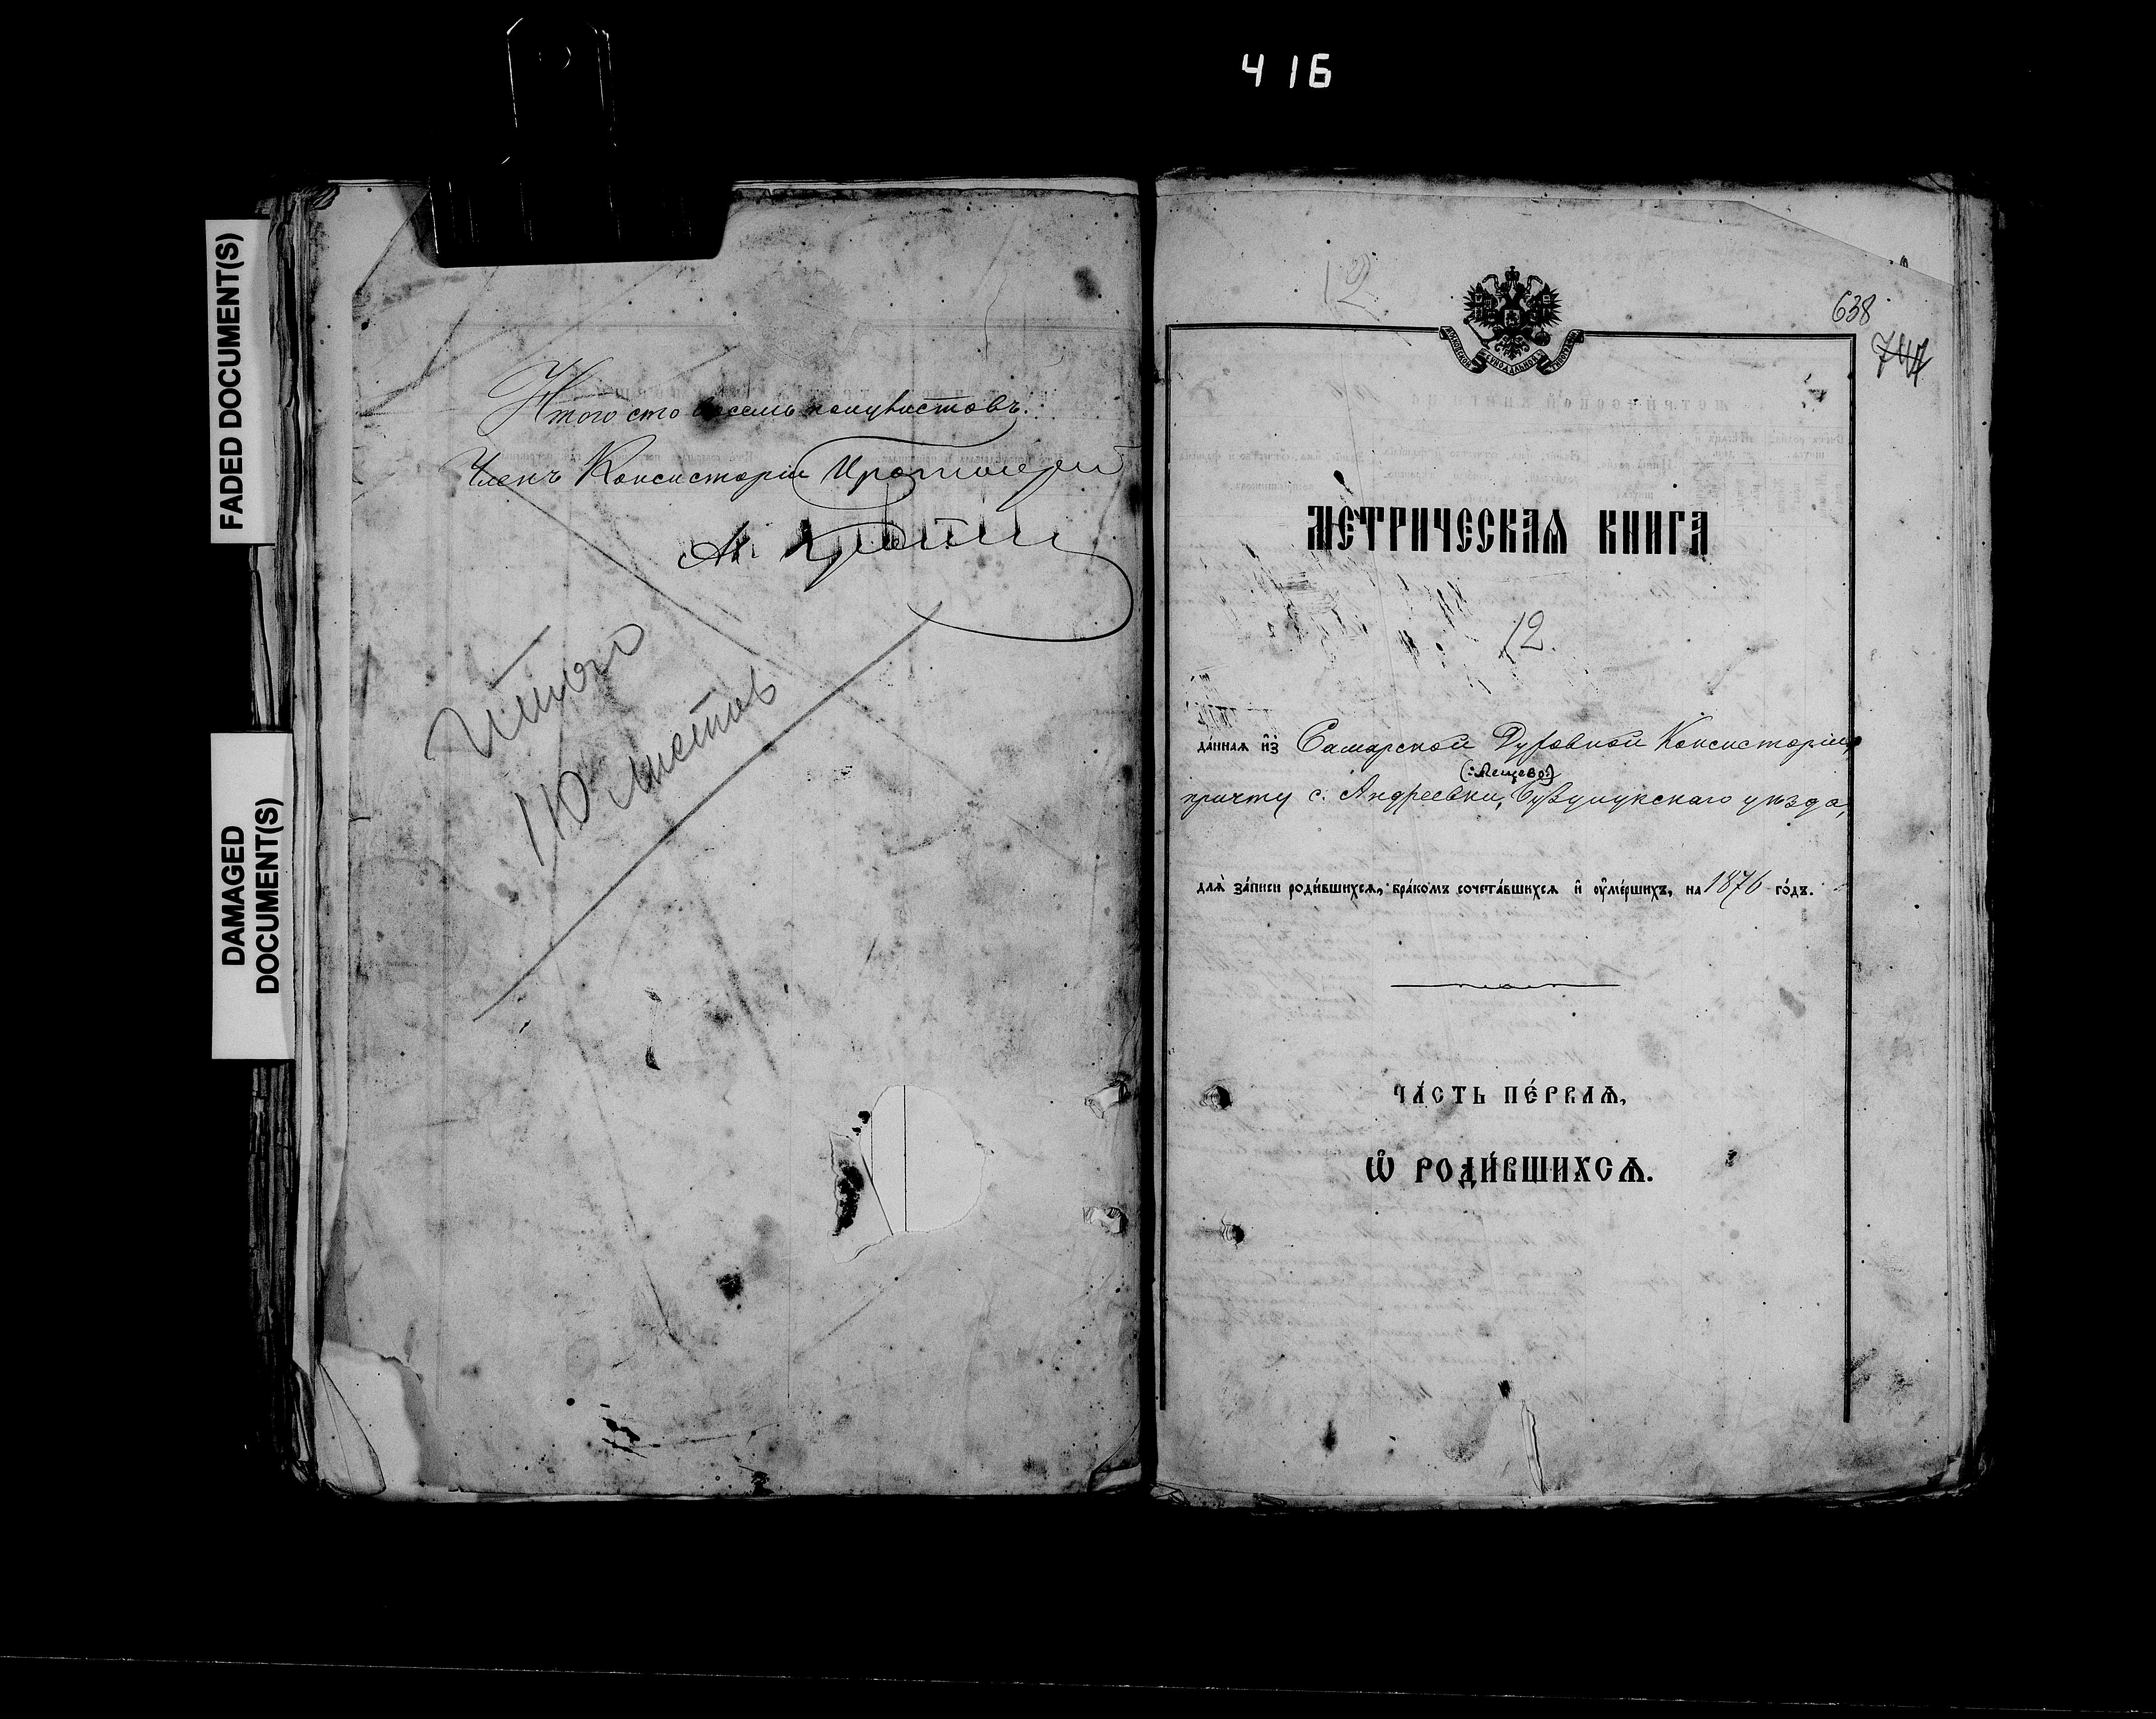 416
FADED DOCUMENT(S)
DAMAGED
DOCUMENT(S)
Итого сто восемь полулистовъ.
Членъ Консисторіи Протоіерей
Итого
110 листов
12
638
747
МЕТРИЧЕСКАЯ КНИГА
12.
да́нная и҆з̾ Самарской Духовной Консисторіи,
(:Лещево:)
причту с. Андреевки, Бузулукскаго уѣзда,
для̀ за́писи роди́вшихся, бра́комъ сочета́вшихся и҆ ᲂу҆ме́ршихъ, на 1876 го́дъ.
ЧА́СТЬ ПЕ́РВАЯ,
Ѽ РОДИ́ВШИХСЯ.